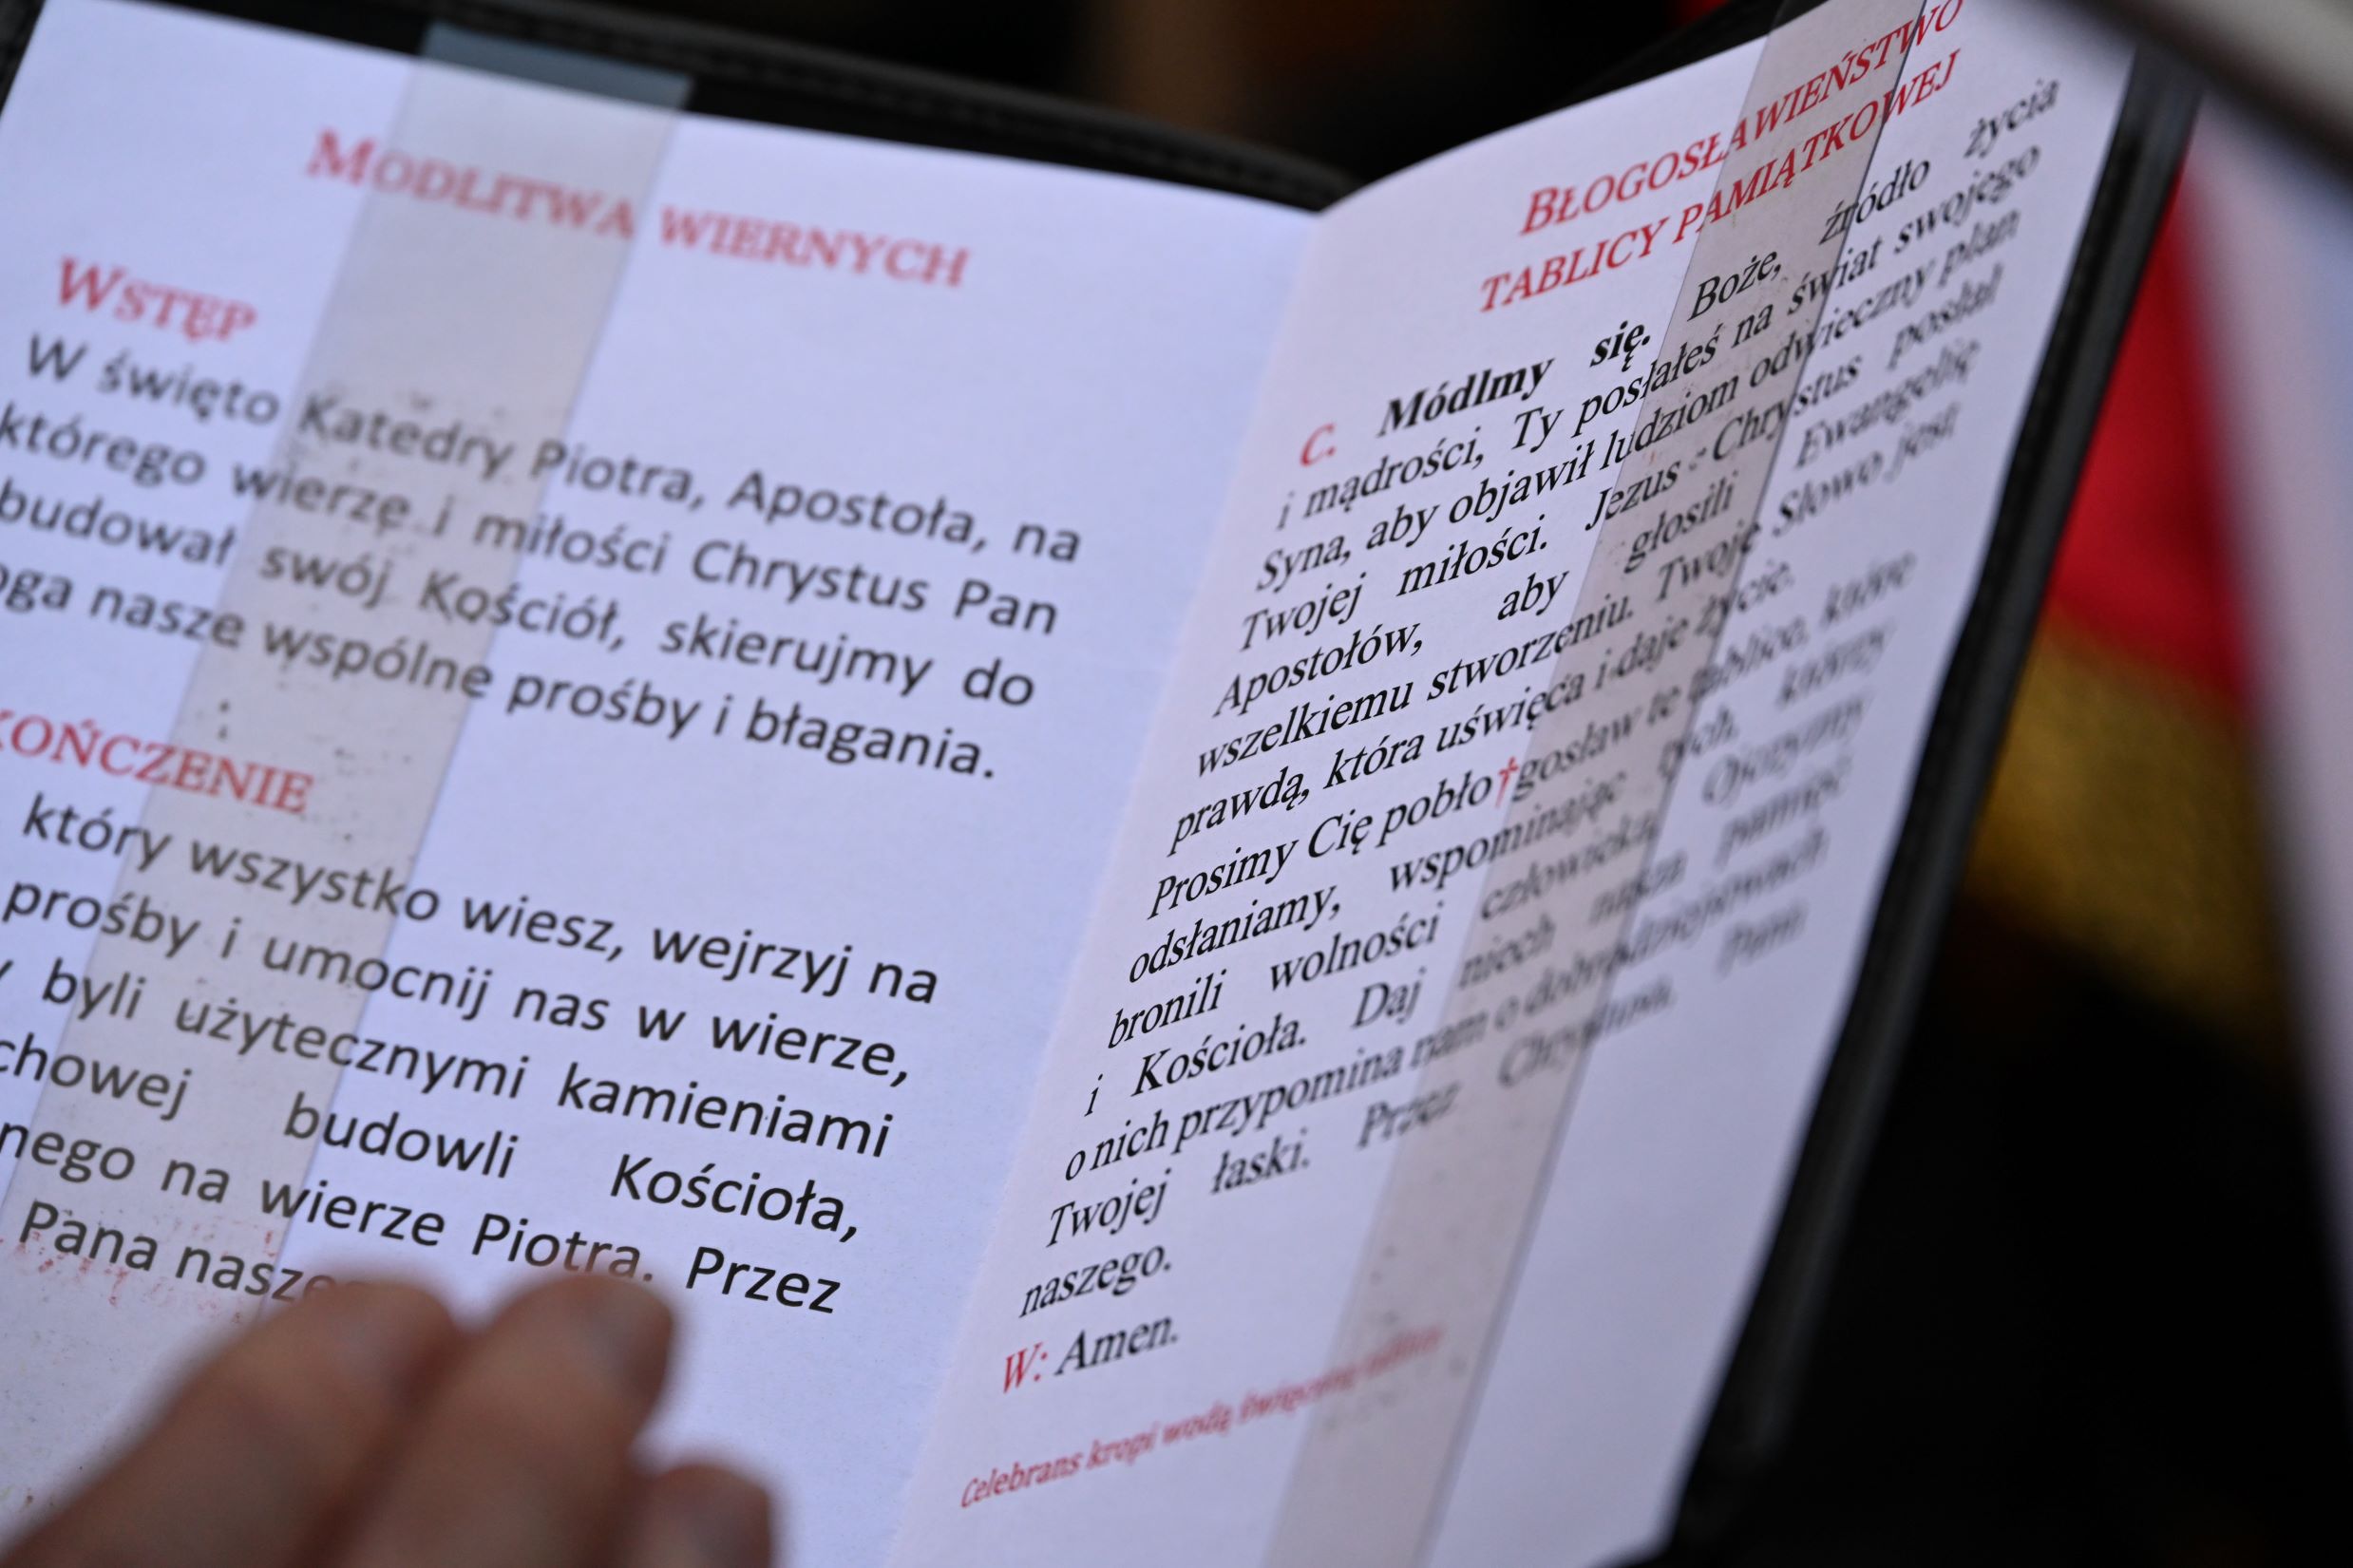 MODLITWA WIERNYCH
WSTĘP
W święto Katedry Piotra, Apostoła, na
którego wierze i miłości Chrystus Pan
budował swój Kościół, skierujmy do
oga nasze wspólne prośby i błagania.
KOŃCZENIE
który wszystko wiesz, wejrzyj na
prośby i umocnij nas w wierze,
y byli użytecznymi kamieniami
chowej budowli Kościoła,
nego na wierze Piotra. Przez
Pana nasze
BŁOGOSŁAWIEŃSTWO
TABLICY PAMIĄTKOWEJ
C. Módlmy się. Boże, źródło życia
i mądrości, Ty posłałeś na świat swojego
Syna, aby objawił ludziom odwieczny plan
Twojej miłości. Jezus Chrystus posłał
Apostołów, aby głosili Ewangelię
wszelkiemu stworzeniu. Twoje Słowo jest
prawdą, która uświęca i daje życie.
Prosimy Cię pobło†gosław tę tablicę, którą
odsłaniamy, wspominając tych, którzy
bronili wolności człowieka, Ojczyzny
i Kościoła. Daj niech nasza pamięć
o nich przypomina nam o dobrodziejstwach
Twojej łaski. Przez Chrystusa, Pana
naszego.
W: Amen.
Celebrans kropi wodą święconą tablicę.